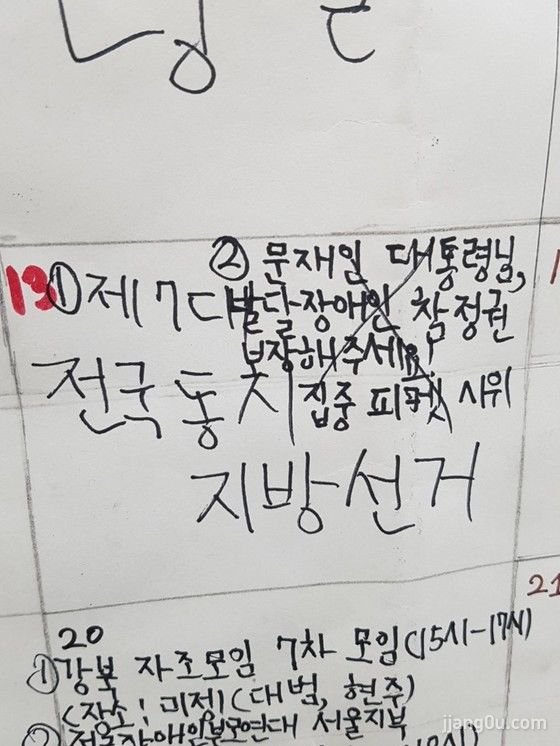 13
① 제 7대
전국 동시
지방선거
② 문재인 대통령님,
발달장애인 참정권
보장해주세요!
집중 피켓 시위
21
20
① 강북 자조모임 7차 모임(15시-17시)
(장소: 미정)(대범, 현주)
② 전국장애인부모연대 서울지부
jjang0u.com